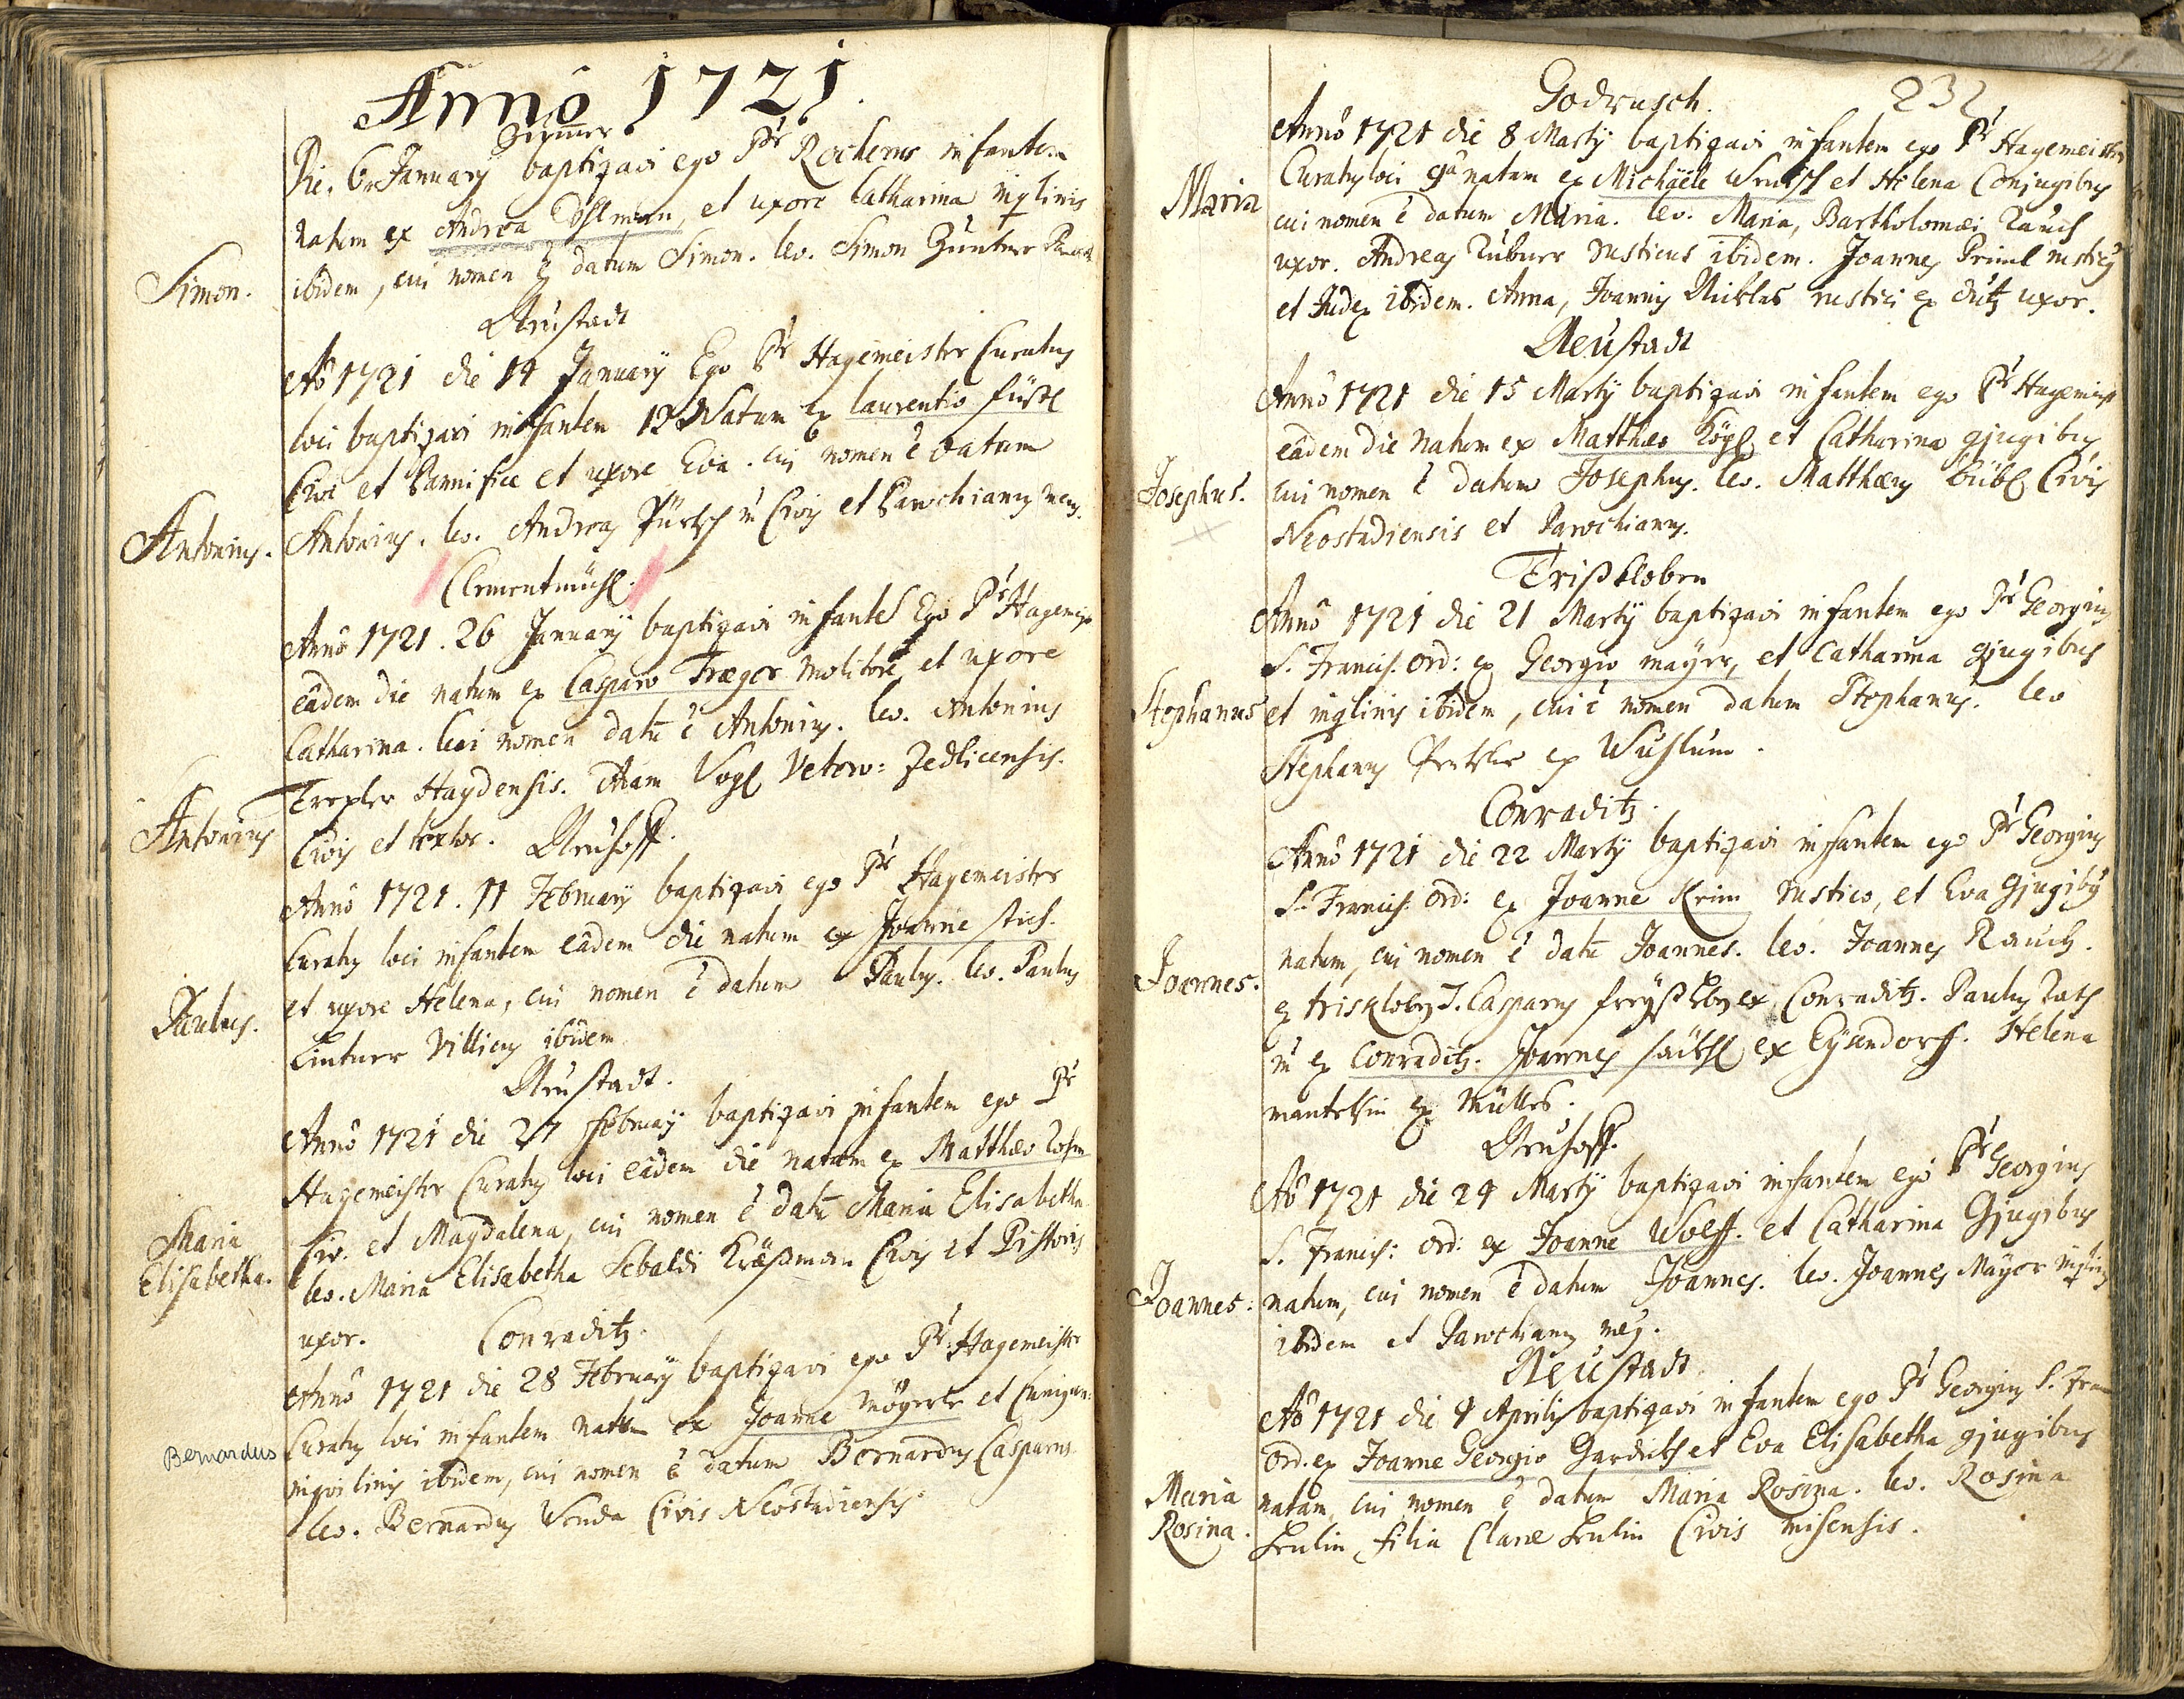 Annô 1721.
Die 6 January baptizavi ego Pr Rochems infantem
natum ex Andrea et uxore Catharina inqlinis
Simon.
ibidem, cui nomen ē datum Simon. lev. Simon Züntner
Neüstadt
Aô 1721 die 14 January Ego Pr Hagemeister Curatus
loci baptizavi infantem natum ex laurentio fürst
Cive et Pannifice et uxore Eva. cui nomen ē datum
Antonius.
Antonius. lev. Andreas Civis et Parochianus meus.
Clementmühl.
Annô 1721. 26 January baptizavi infantē Ego Pr Hagemeist
eâdem die natum ex Casparo Træger Molitore et uxore
Catharina. Cui nomen datū ē Antonius. lev. Antonius
Antonius
Trexler Haydensis. Adam Vogl Vetero: Zedlicensis.
Civis et textor. Neuhoff.
Annô 1721. 11 February baptizavi ego Pr Hagemeister
Curatus loci infantem eâdem die natum ex Joanne stich.
Paulus.
et uxore Helena, cui nomen ē datum Paulus. lev. Paulus
Lintner Villicus ibidem
Neustadt.
Annô 1721 die 27 February baptizavi infantem ego Pr
Hagemeister Curatus loci eâdem die natam ex Matthæo
Maria
Elisabetha.
Civ. et Magdalena, cui nomen ē datū Maria Elisabetha
lev. Maria Elisabetha Sebaldi Civis et Pistoris
uxor. Conraditz.
Annô 1721 die 28 February baptizavi ego Pr Hagemeister
Curatus loci infantem natum ex Joanne Mögerle et Cunigun:
Bernardus
inqvilinis ibidem, cui nomen ē datum Bernardus Casparus
lev. Bernardus Wenda Civis Neostadiensis
232
Godrusch.
Annô 1721 die 8 Marty baptizavi infantem ego Pr Hagemeister
Curatus loci natam ex Michaële et Helena Conjugibus
Maria
cui nomen ē datum Maria. lev. Maria, Bartholomæi Rauch
uxor. Andreas rusticus ibidem. Joannes Priml rusticus
et Judex ibidem. Anna, Joannis Nicklas rustici ex uxor.
Neüstadt
Annô 1721 die 15 Marty baptizavi infantem ego Pr Hagemeist
eâdem die natum ex Matthæo Kögl et Catharina gjugibus
Josephus.
cui nomen ē datum Josephus. lev. Matthæus Civis
Neostadiensis et Parochianus.
Trißkloben
Annô 1721 die 21 Marty baptizavi infantem ego Pr Georgius
S. Francis. ord: ex Georgio mayer, et Catharina gjugibus
Stephanus
et inqlinis ibidem, cui ē nomen datum Stephanus. lev
Stephanus ex Wuslum.
Conraditz.
Annô 1721 die 22 Marty baptizavi infantem ego Pr Georgius
S. Francis. ord: ex Joanne Krim rustico, et Eva gjugibus
natum, cui nomen ē datū Joannes. lev. Joannes Rauch.
Joannes.
ex triskloben J. Casparus ex Conraditz. Paulus Rath
ex Conraditz. Joannes ex Eysendorff. Helena
mantelin ex Mülles.
Neuhoff.
Aô 1721 die 24 Marty baptizavi infantem ego Pr Georgius
S. Francis: ord: ex Joanne Wolff. et Catharina Gjugibus
Joannes.
natum, cui nomen ē datum Joannes. lev. Joannes Mayer inqlinus
ibidem et Parochianus meus.
Neüstadt
Aô 1721 die 4 Aprilis baptizavi infantem ego Pr Georgius S. Fran
ord. ex Joanne Georgio et Eva Elisabetha gjugibus
Maria
Rosina.
natam, cui nomen ē datum Maria Rosina. lev. Rosina
filia Claræ Civis misensis.